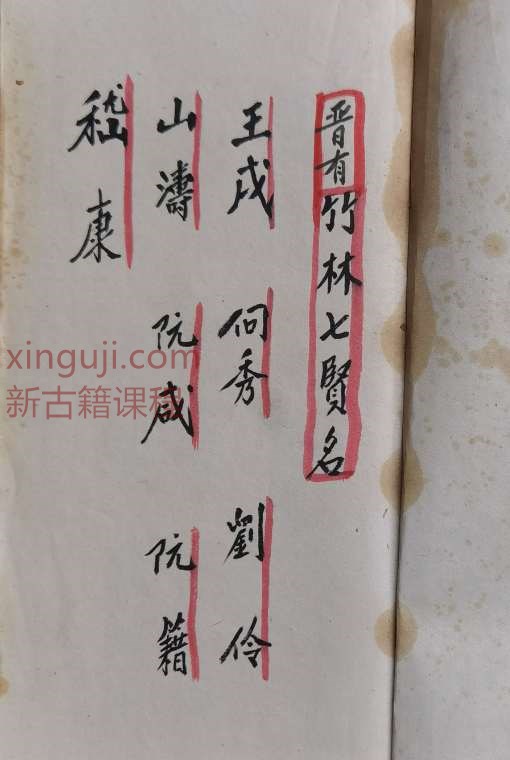 晋有竹林七賢名
王戎 向秀 劉伶
山濤 阮咸 阮籍
嵇康
xinguji.com
新古籍课